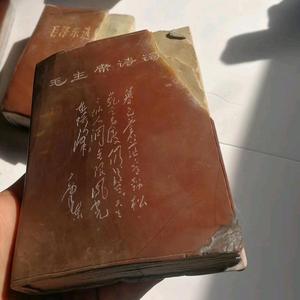 毛泽东选
毛主席诗词
暮色苍茫看劲松
乱云飞渡仍从容天生
一个仙人洞无限风光
在险峰